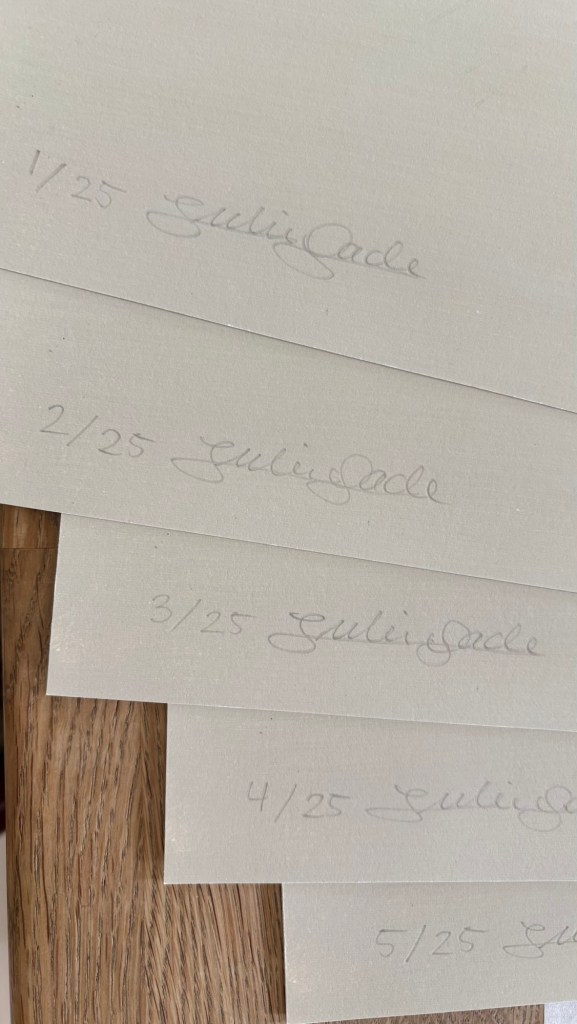 1/25 Julie Gade
2/25 Julie Gade
3/25 Julie Gade
4/25 Julie Ga
5/25 Ju